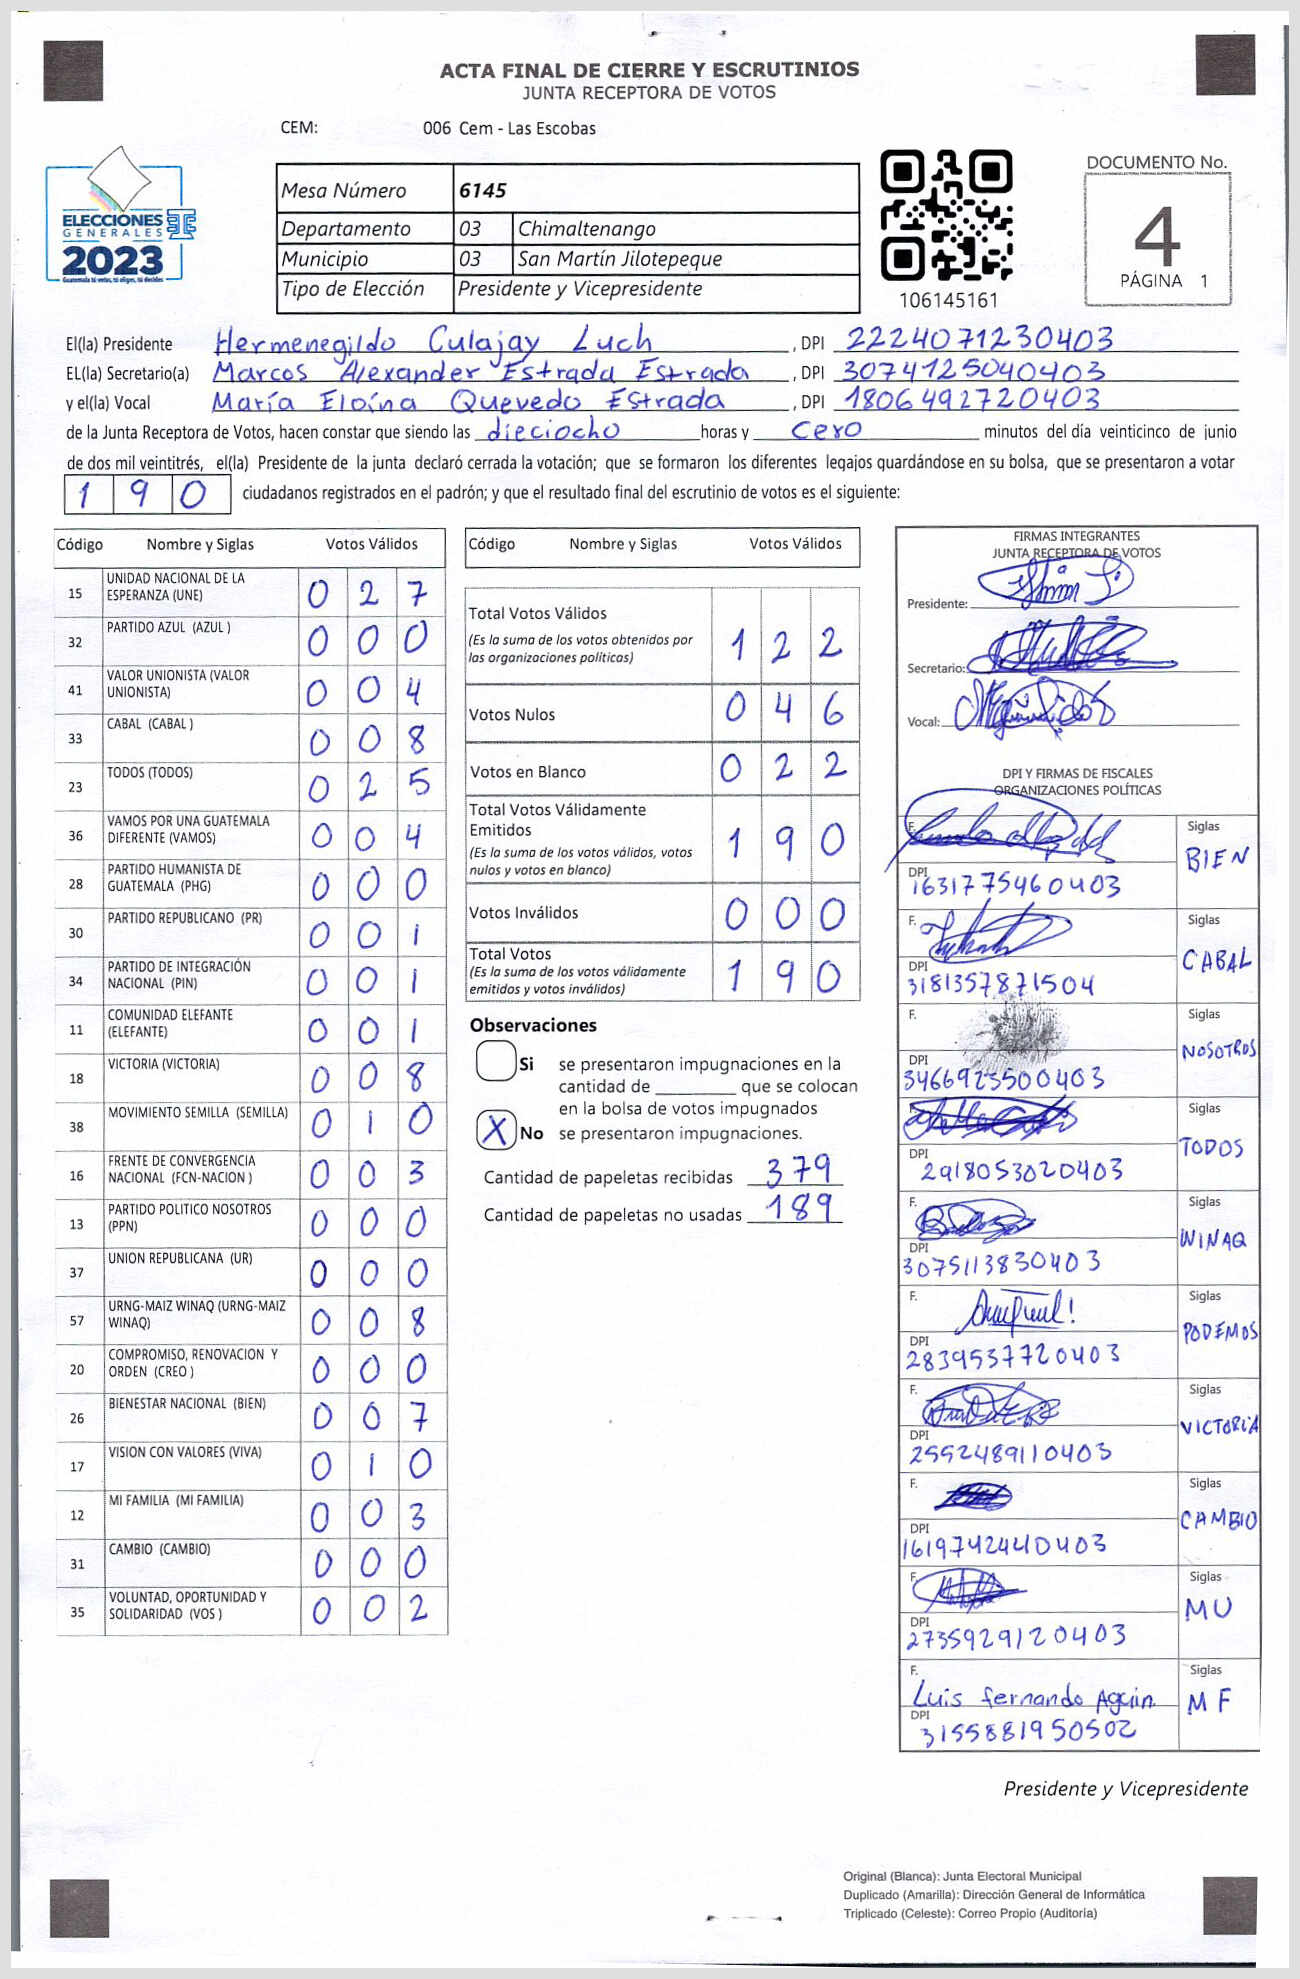 ACTA FINAL DE CIERRE Y ESCRUTINIOS
JUNTA RECEPTORA DE VOTOS
CEM: 006 Cem - Las Escobas
ELECCIONES
GENERALES
2023
Guatemala tú votas, tú eliges, tú decides
Mesa Número 6145
Departamento 03 Chimaltenango
Municipio 03 San Martín Jilotepeque
Tipo de Elección Presidente y Vicepresidente
106145161
DOCUMENTO No.
4
PÁGINA 1
El(la) Presidente Hermenegildo Culajay Luch, DPI 2224071230403
EL(la) Secretario(a) Marcos Alexander Estrada Estrada, DPI 3074125040403
y el(la) Vocal María Eloína Quevedo Estrada, DPI 1806492720403
de la Junta Receptora de Votos, hacen constar que siendo las dieciocho horas y cero minutos del día veinticinco de junio
de dos mil veintitrés, el(la) Presidente de la junta declaró cerrada la votación; que se formaron los diferentes legajos guardándose en su bolsa, que se presentaron a votar
190 ciudadanos registrados en el padrón; y que el resultado final del escrutinio de votos es el siguiente:
Código Nombre y Siglas Votos Válidos
15 UNIDAD NACIONAL DE LA ESPERANZA (UNE) 027
32 PARTIDO AZUL (AZUL ) 000
41 VALOR UNIONISTA (VALOR UNIONISTA) 004
33 CABAL (CABAL ) 008
23 TODOS (TODOS) 025
36 VAMOS POR UNA GUATEMALA DIFERENTE (VAMOS) 004
28 PARTIDO HUMANISTA DE GUATEMALA (PHG) 000
30 PARTIDO REPUBLICANO (PR) 001
34 PARTIDO DE INTEGRACIÓN NACIONAL (PIN) 001
11 COMUNIDAD ELEFANTE (ELEFANTE) 001
18 VICTORIA (VICTORIA) 008
38 MOVIMIENTO SEMILLA (SEMILLA) 010
16 FRENTE DE CONVERGENCIA NACIONAL (FCN-NACION ) 003
13 PARTIDO POLITICO NOSOTROS (PPN) 000
37 UNION REPUBLICANA (UR) 000
57 URNG-MAIZ WINAQ (URNG-MAIZ WINAQ) 008
20 COMPROMISO, RENOVACION Y ORDEN (CREO ) 000
26 BIENESTAR NACIONAL (BIEN) 007
17 VISION CON VALORES (VIVA) 010
12 MI FAMILIA (MI FAMILIA) 003
31 CAMBIO (CAMBIO) 000
35 VOLUNTAD, OPORTUNIDAD Y SOLIDARIDAD (VOS ) 002
Código Nombre y Siglas Votos Válidos
Total Votos Válidos 122
(Es la suma de los votos obtenidos por
las organizaciones políticas)
Votos Nulos 046
Votos en Blanco 022
Total Votos Válidamente
Emitidos 190
(Es la suma de los votos válidos, votos
nulos y votos en blanco)
Votos Inválidos 000
Total Votos 190
(Es la suma de los votos válidamente
emitidos y votos inválidos)
Observaciones
Si se presentaron impugnaciones en la
cantidad de ________ que se colocan
en la bolsa de votos impugnados
X No se presentaron impugnaciones.
Cantidad de papeletas recibidas 379
Cantidad de papeletas no usadas 189
FIRMAS INTEGRANTES
JUNTA RECEPTORA DE VOTOS
Presidente:
Secretario:
Vocal:
DPI Y FIRMAS DE FISCALES
ORGANIZACIONES POLÍTICAS
F. Siglas
BIEN
DPI 1631775460403
F. Siglas
CABAL
DPI 3181357871504
F. Siglas
NOSOTROS
DPI 3466923500403
F. Siglas
TODOS
DPI 2918053020403
F. Siglas
WINAQ
DPI 3075113830403
F. Siglas
PODEMOS
DPI 2839537720403
F. Siglas
VICTORIA
DPI 2552489110403
F. Siglas
CAMBIO
DPI 1619742440403
F. Siglas
MU
DPI 2735929120403
F. Luis fernando Aguin. Siglas
MF
DPI 3155881950502
Presidente y Vicepresidente
Original (Blanca): Junta Electoral Municipal
Duplicado (Amarilla): Dirección General de Informática
Triplicado (Celeste): Correo Propio (Auditoría)